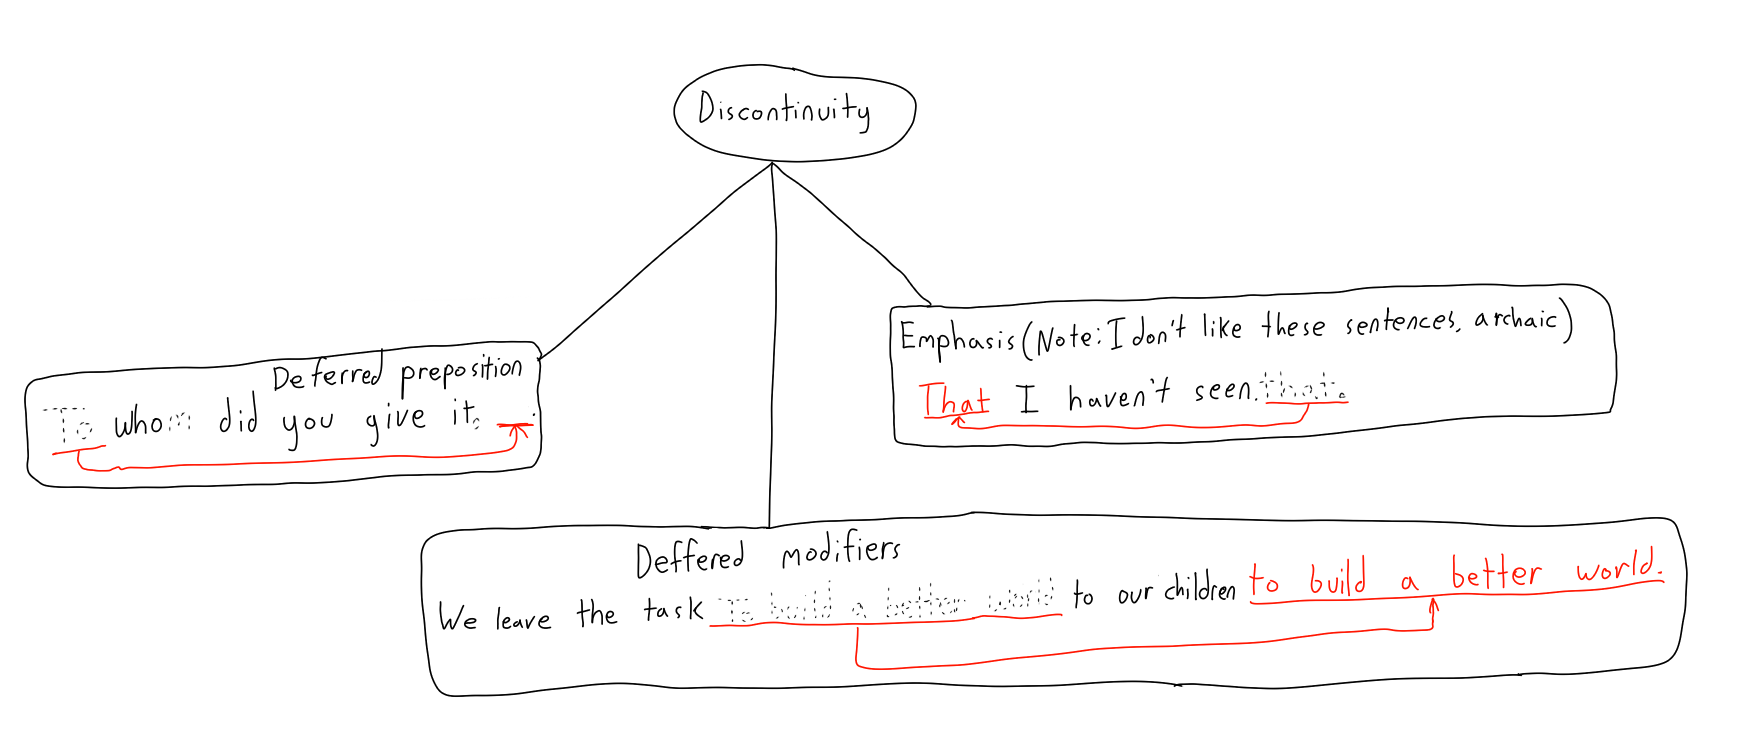 Discontinuity
Deferred preposition
To whom did you give it. __.
Emphasis (Note: I don't like these sentences, archaic)
That I haven't seen. that.
Deffered modifiers
We leave the task To build a better world to our children to build a better world.